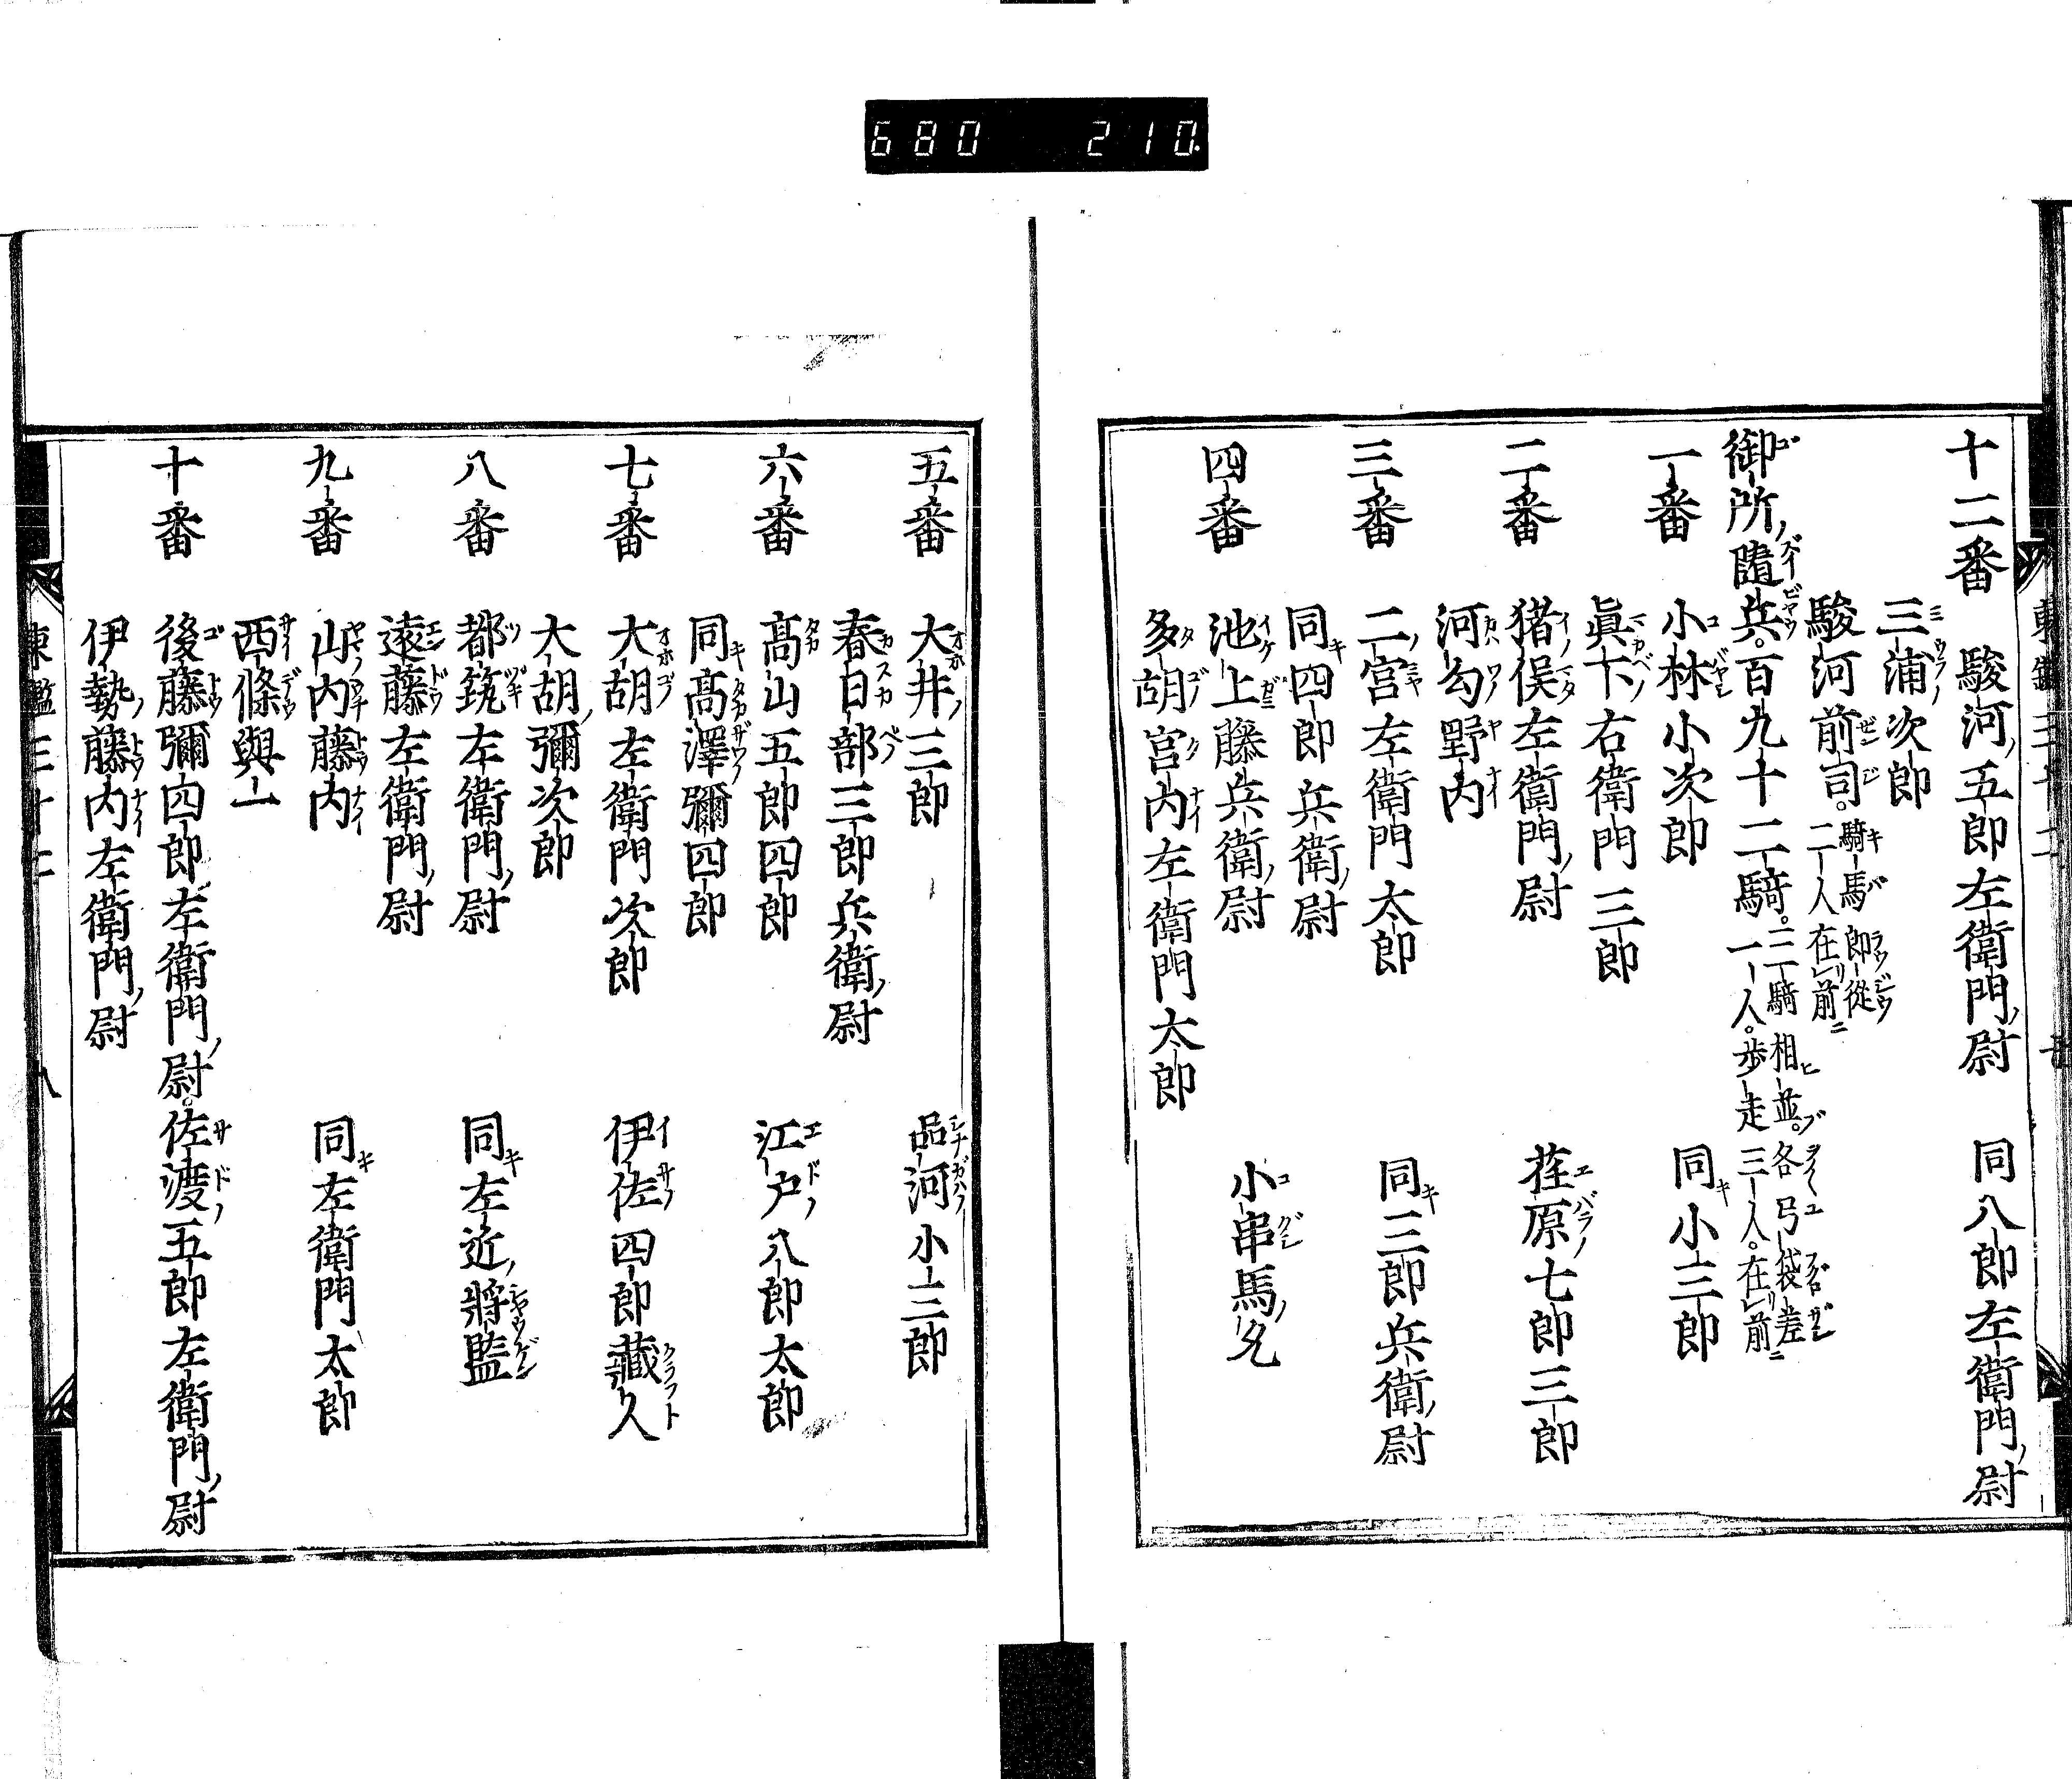 680 210
十二番 駿河五郎左衛門尉 同八郎左衛門尉
三浦次郎
駿河前司。騎馬郎従
二人在前
御所隨兵。百九十二騎。三騎相並。各弓袋差
一人。歩走三人。在前
一番 小林小次郎 同小三郎
眞下右衛門三郎
二番 猪俣左衛門尉 荏原七郎三郎
河勾野内
三番 二宮左衛門太郎 同三郎兵衛尉
同四郎兵衛尉
四番 池上藤兵衛尉 小串馬允
多胡宮内左衛門太郎
五番 大井三郎 品河小三郎
春日部三郎兵衛尉
六番 高山五郎四郎 江戸八郎太郎
同高澤彌四郎
七番 大胡左衛門次郎 伊佐四郎蔵人
大胡彌次郎
八番 都筑左衛門尉 同左近將監
遠藤左衛門尉
九番 山内藤内 同左衛門太郎
西條與一
十番 後藤彌四郎左衛門尉。佐渡五郎左衛門尉
伊勢藤内左衛門尉
東鑑三十二 八